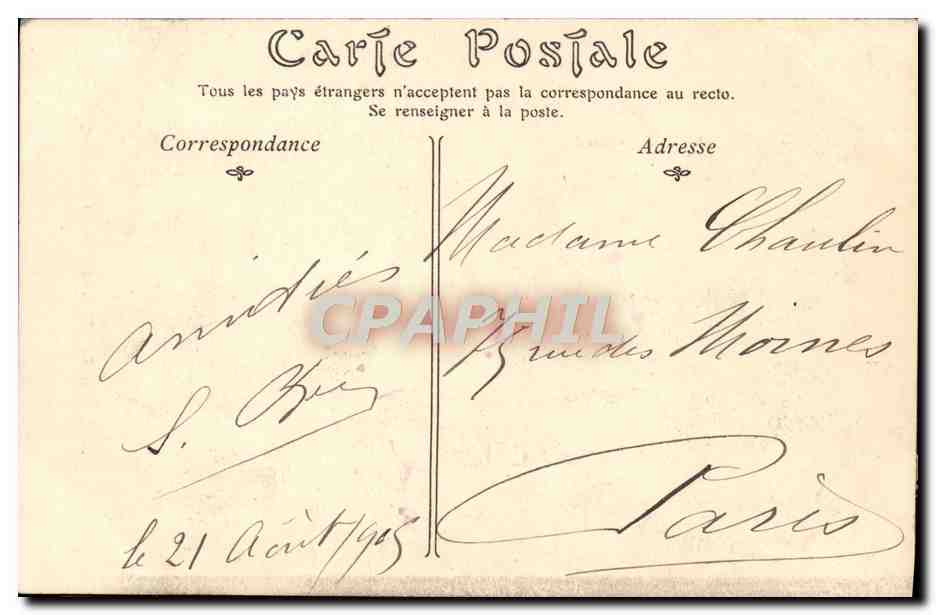 Carte Postale
Tous les pays étrangers n'acceptent pas la correspondance au recto.
Se renseigner à la poste.
Correspondance
Adresse
amitiés
S.
le 21 Août 1905
Madame Chaulin
rue des Moines
Paris
CPAPHIL